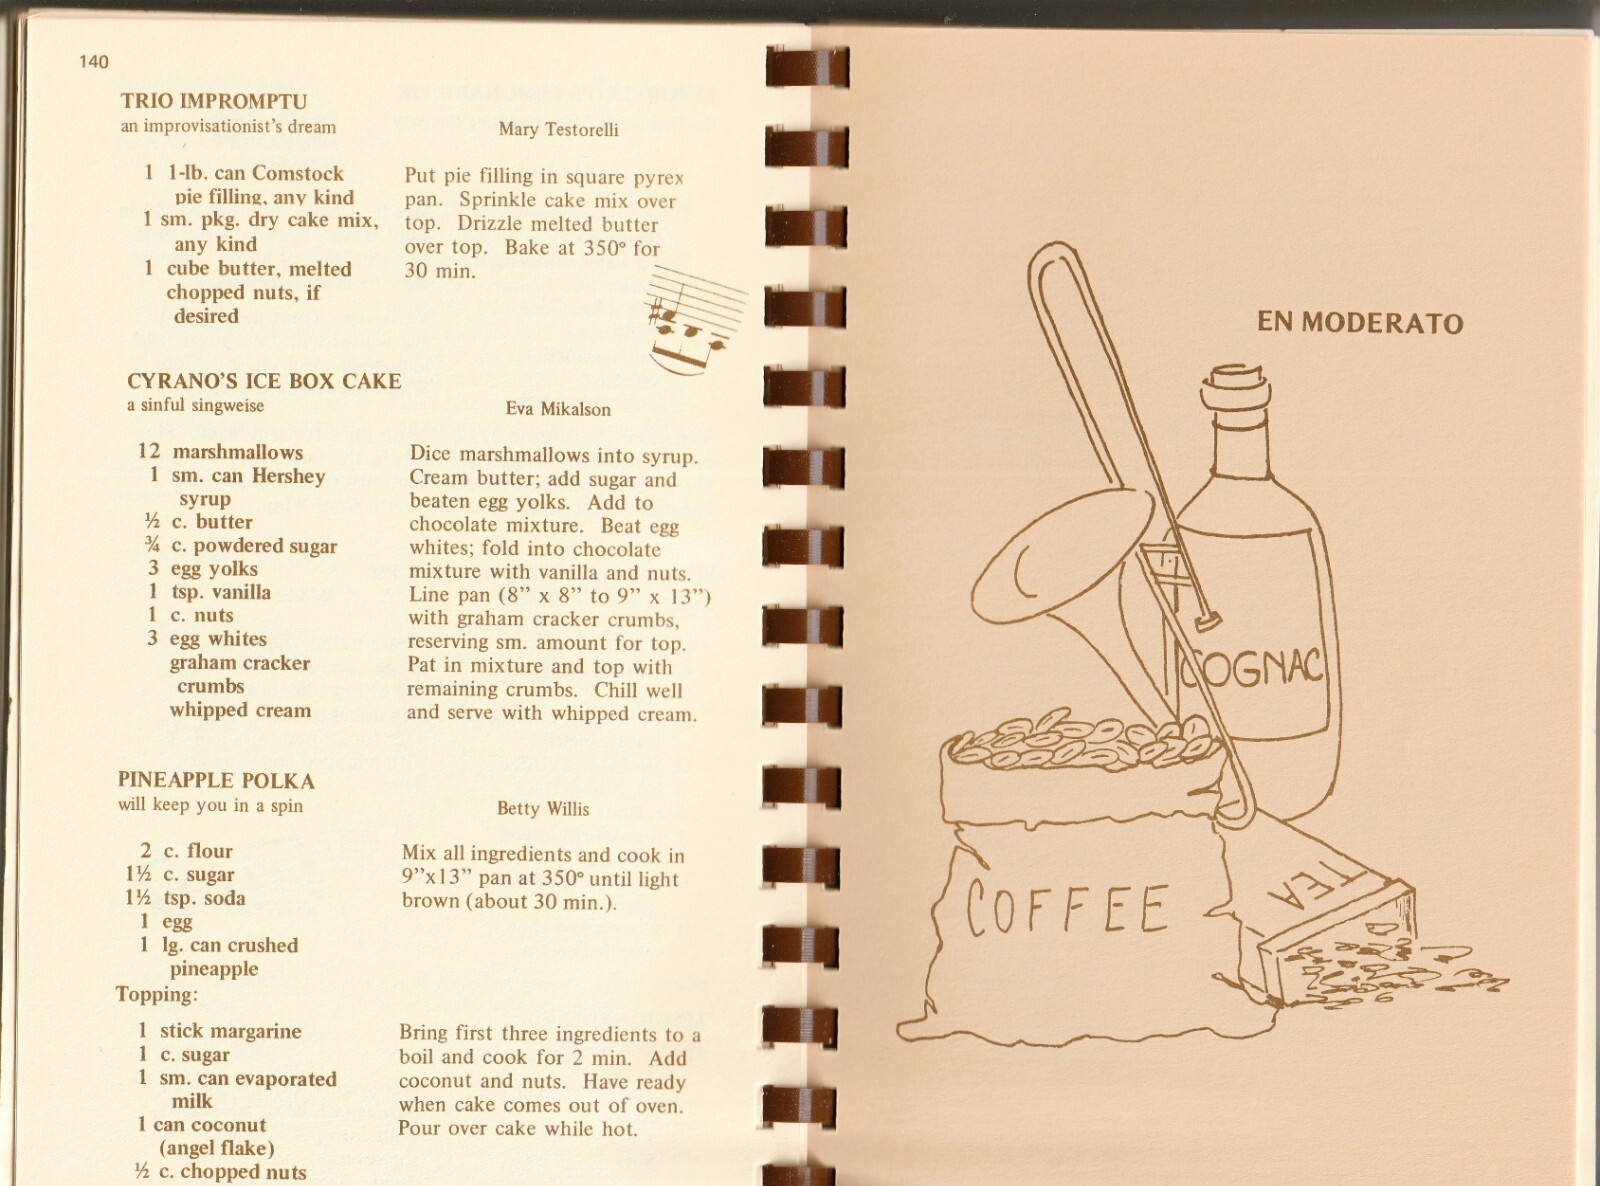 140
TRIO IMPROMPTU
an improvisationist's dream
Mary Testorelli
1 1-lb. can Comstock
pie filling, any kind
1 sm. pkg. dry cake mix,
any kind
1 cube butter, melted
chopped nuts, if
desired
Put pie filling in square pyrex
pan. Sprinkle cake mix over
top. Drizzle melted butter
over top. Bake at 350° for
30 min.
CYRANO'S ICE BOX CAKE
a sinful singweise
Eva Mikalson
12 marshmallows
1 sm. can Hershey
syrup
½ c. butter
¾ c. powdered sugar
3 egg yolks
1 tsp. vanilla
1 c. nuts
3 egg whites
graham cracker
crumbs
whipped cream
Dice marshmallows into syrup.
Cream butter; add sugar and
beaten egg yolks. Add to
chocolate mixture. Beat egg
whites; fold into chocolate
mixture with vanilla and nuts.
Line pan (8” x 8” to 9” x 13”)
with graham cracker crumbs,
reserving sm. amount for top.
Pat in mixture and top with
remaining crumbs. Chill well
and serve with whipped cream.
PINEAPPLE POLKA
will keep you in a spin
Betty Willis
2 c. flour
1½ c. sugar
1½ tsp. soda
1 egg
1 lg. can crushed
pineapple
Mix all ingredients and cook in
9”x13” pan at 350° until light
brown (about 30 min.).
Topping:
1 stick margarine
1 c. sugar
1 sm. can evaporated
milk
1 can coconut
(angel flake)
½ c. chopped nuts
Bring first three ingredients to a
boil and cook for 2 min. Add
coconut and nuts. Have ready
when cake comes out of oven.
Pour over cake while hot.
EN MODERATO
COGNAC
COFFEE
TEA